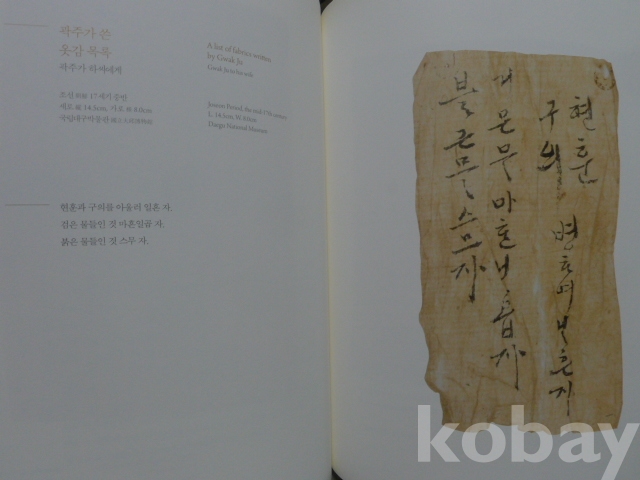 곽주가 쓴
옷감 목록
곽주가 하씨에게
A list of fabrics written
by Gwak Ju
Gwak Ju to his wife
조선 朝鮮 17세기 중반
세로 縱 14.5cm, 가로 橫
국립대구박물관 國立大邱博物館
Joseon Period, the mid-17th century
L. 14.5cm, W.
Daegu National Museum
현훈과 구의를 아울러 일흔 자.
검은 물들인 것 마흔일곱 자.
붉은 물들인 것 스무 자.
현훈
구의
믈 마흔닐흡 자
블근 믈 스므 자
kobay